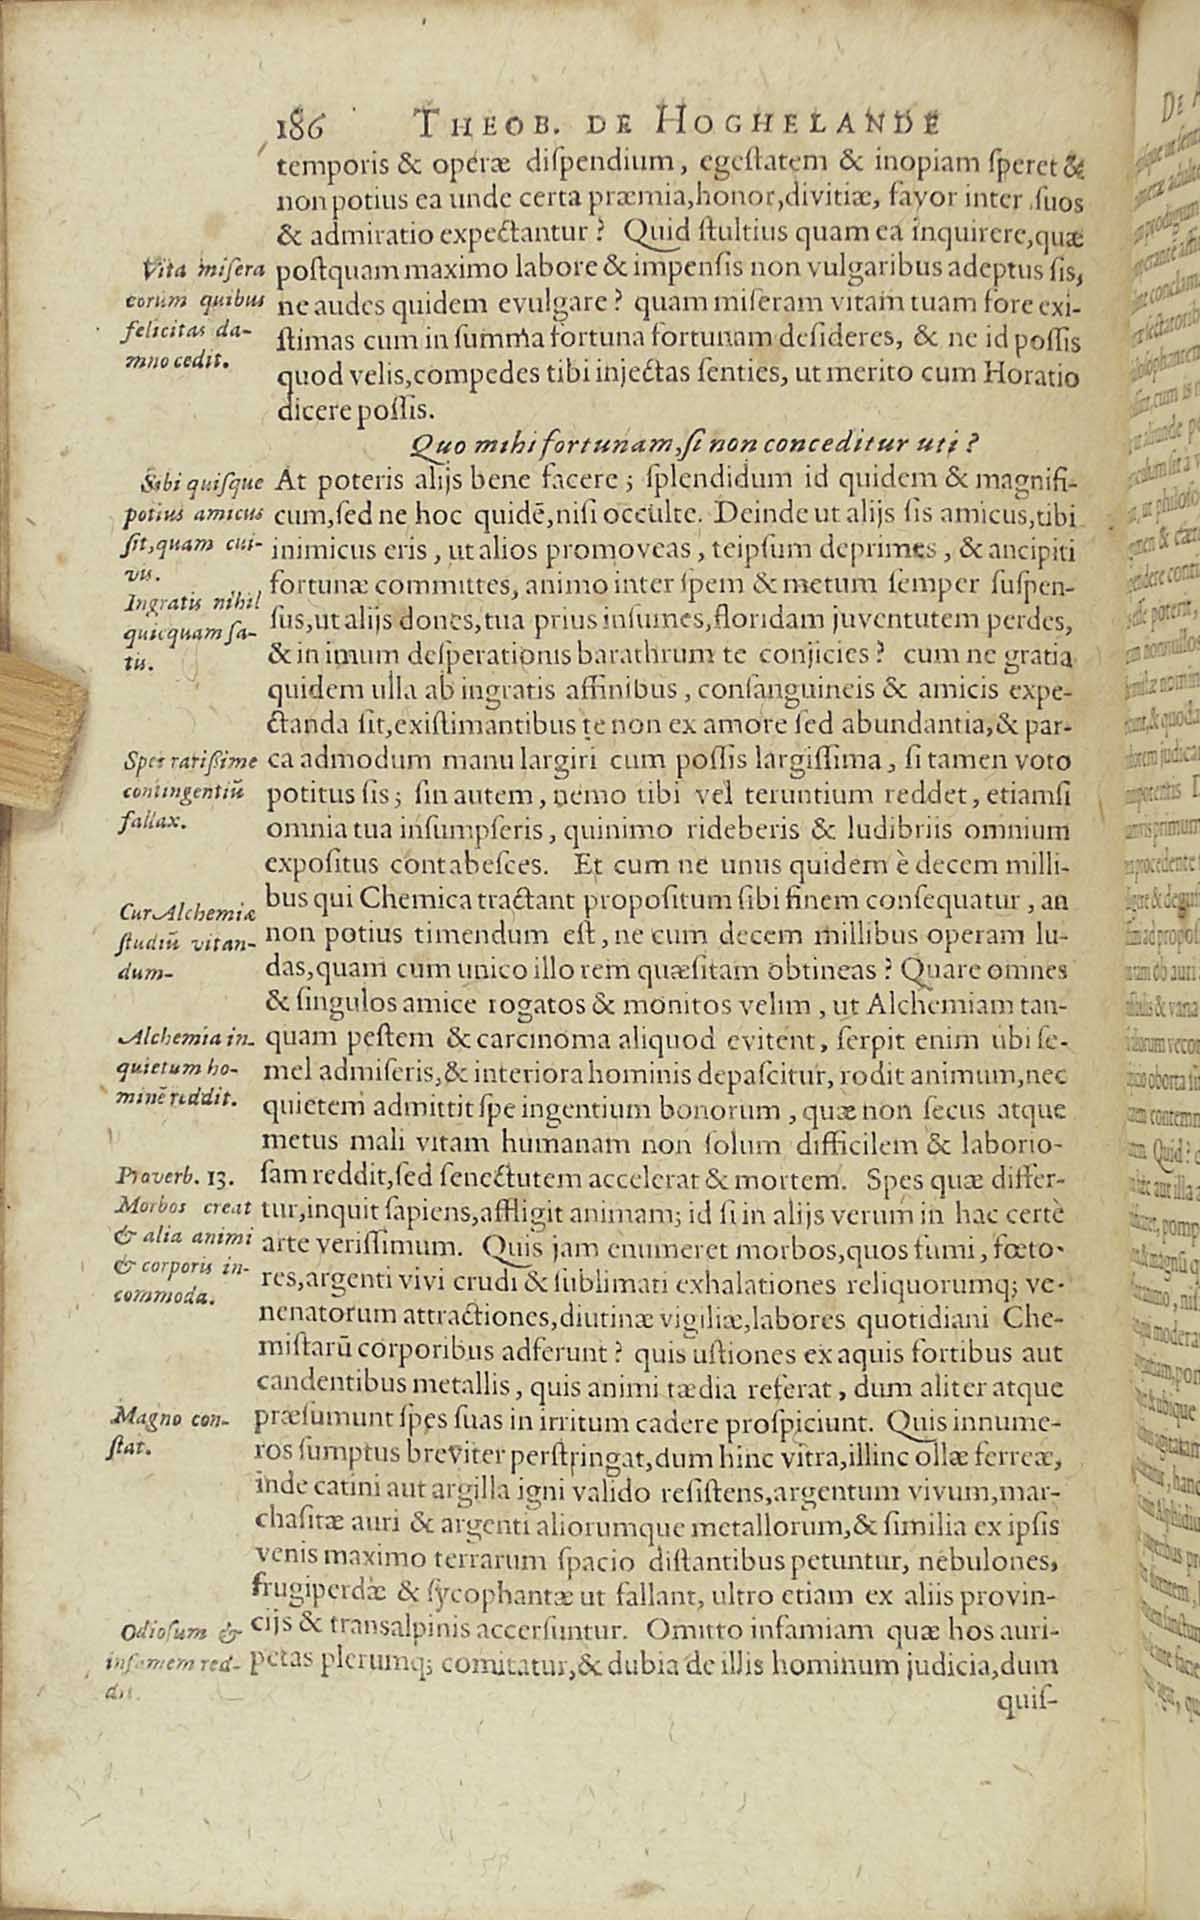 186 THEOB. DE HOGHELANDE
temporis & operæ diſpendium, egeſtatem & inopiam ſperet &
non potius ea unde certa præmia, honor, divitiæ, favor inter ſuos
& admiratio expectantur? Quid ſtultius quam ea inquirere, quæ
poſtquam maximo labore & impenſis non vulgaribus adeptus ſis,
ne audes quidem evulgare? quam miſeram vitam tuam fore exi-
ſtimas cum in ſumma fortuna fortunam deſideres, & ne id poſſis
quod velis, compedes tibi injectas ſenties, ut merito cum Horatio
dicere poſſis.
Quo mihi fortunam, ſi non conceditur uti?
At poteris alijs bene facere; ſplendidum id quidem & magnifi-
cum, ſed ne hoc quidē, niſi occulte. Deinde ut alijs ſis amicus, tibi
inimicus eris, ut alios promoveas, teipſum deprimes, & ancipiti
fortunæ committes, animo inter ſpem & metum ſemper ſuſpen-
ſus, ut alijs dones, tua prius inſumes, floridam juventutem perdes,
& in imum deſperationis barathrum te conjicies? cum ne gratia
quidem ulla ab ingratis affinibus, conſanguineis & amicis expe-
ctanda ſit, exiſtimantibus te non ex amore ſed abundantia, & par-
ca admodum manu largiri cum poſſis largiſſima, ſi tamen voto
potitus ſis; ſin autem, nemo tibi vel teruntium reddet, etiamſi
omnia tua inſumpſeris, quinimo rideberis & ludibriis omnium
expoſitus contabeſces. Et cum ne unus quidem è decem milli-
bus qui Chemica tractant propoſitum ſibi finem conſequatur, an
non potius timendum eſt, ne cum decem millibus operam lu-
das, quam cum unico illo rem quæſitam obtineas? Quare omnes
& ſingulos amice rogatos & monitos velim, ut Alchemiam tan-
quam peſtem & carcinoma aliquod evitent, ſerpit enim ubi ſe-
mel admiſeris, & interiora hominis depaſcitur, rodit animum, nec
quietem admittit ſpe ingentium bonorum, quæ non ſecus atque
metus mali vitam humanam non ſolum difficilem & laborio-
ſam reddit, ſed ſenectutem accelerat & mortem. Spes quæ differ-
tur, inquit ſapiens, affligit animam; id ſi in alijs verum in hac certè
arte veriſſimum. Quis jam enumeret morbos, quos fumi, fœto-
res, argenti vivi crudi & ſublimati exhalationes reliquorumq; ve-
nenatorum attractiones, diutinæ vigiliæ, labores quotidiani Che-
miſtarū corporibus adferunt? quis uſtiones ex aquis fortibus aut
candentibus metallis, quis animi tædia referat, dum aliter atque
præſumunt ſpes ſuas in irritum cadere proſpiciunt. Quis innume-
ros ſumptus breviter perſtringat, dum hinc vitra, illinc ollæ ferreæ,
inde catini aut argilla igni valido reſiſtens, argentum vivum, mar-
chaſitæ auri & argenti aliorumque metallorum, & ſimilia ex ipſis
venis maximo terrarum ſpacio diſtantibus petuntur, nebulones,
frugiperdæ & ſycophantæ ut fallant, ultro etiam ex aliis provin-
cijs & transalpinis accerſuntur. Omitto infamiam quæ hos auri-
petas plerumq; comitatur, & dubia de illis hominum judicia, dum
quiſ-
Vita miſera
eorum quibus
felicitas da-
mno cedit.
Sibi quiſque
potius amicus
ſit, quam cui-
vis.
Ingratis nihil
quicquam ſa-
tis.
Spes rariſſime
contingentiū
fallax.
Cur Alchemiæ
ſtudiū vitan-
dum-
Alchemia in-
quietum ho-
minē reddit.
Proverb. 13.
Morbos creat
& alia animi
& corporis in-
commoda.
Magno con-
ſtat.
Odioſum &
infamem red-
dit.